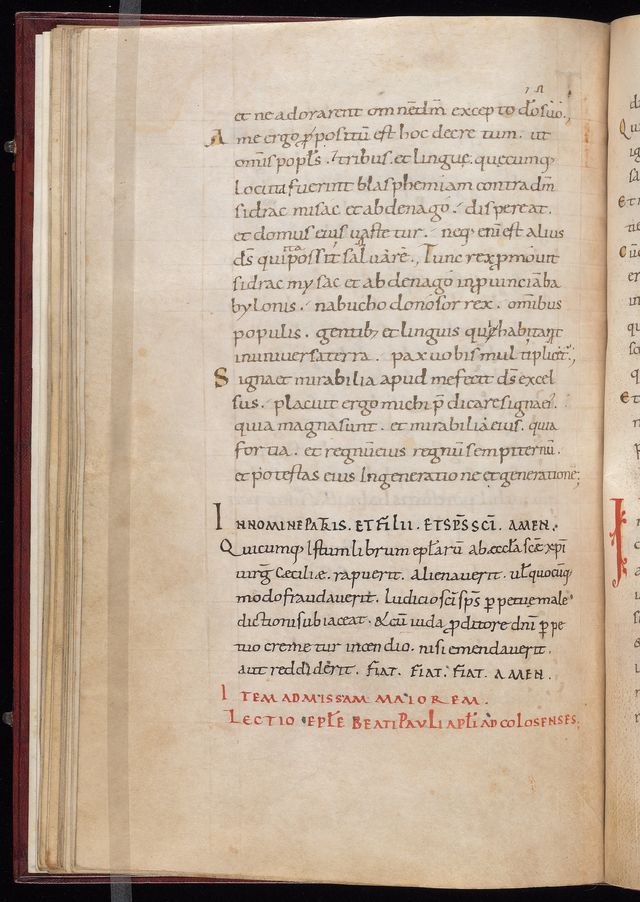 et ne adorarent omnē dm̄ excepto dō suo.,
A me ergo ꝓpositū est hoc decretum. ut
om̄is popl̄s. & tribus. et lingue. quecumq;
locuta fuerint blasphemiam contra dm̄
sidrac misac et abdenago. dispereat.
et domus eius vastetur. neq; eni est alius
ds̄ qui ita possit saluare., Tunc rex ꝓmouit
sidrac mysac et abdenago in ꝓuincia ba
bylonis. nabuchodonosor rex. omibus
populis. gentib; et linguis qui habitant
in universa terra. pax uobis multiplicet.,
Signa et mirabilia apud me fecit ds̄ excel
sus. placuit ergo michi p̄dicare signa ei.
quia magna sunt. et mirabilia eius. quia
fortia. et regnū eius regnū sempiternū.
et potestas eius In generatione et generatione;
IN NOMINE PATRIS. ET FILII. ET SPS̄ SCI. AMEN.
Quicumq; Istum librum epl̄arū ab eccl̄a sc̄e xp̄i
uirg̅ Cecilie. rapuerit. alienauerit. ul̄ quocūq;
modo fraudauerit. Iudicio sci sps̄ perpetue male
dictioni subiaceat. & cū iuda ꝓditore dni perpe
tuo cremetur incendio. nisi emendauerit.
aut reddiderit. FIAT. FIAT. FIAT. AMEN.
ITEM AD MISSAM MAIOREM.
LECTIO EPL̄E BEATI PAULI APL̄I AD COLOSENSES.